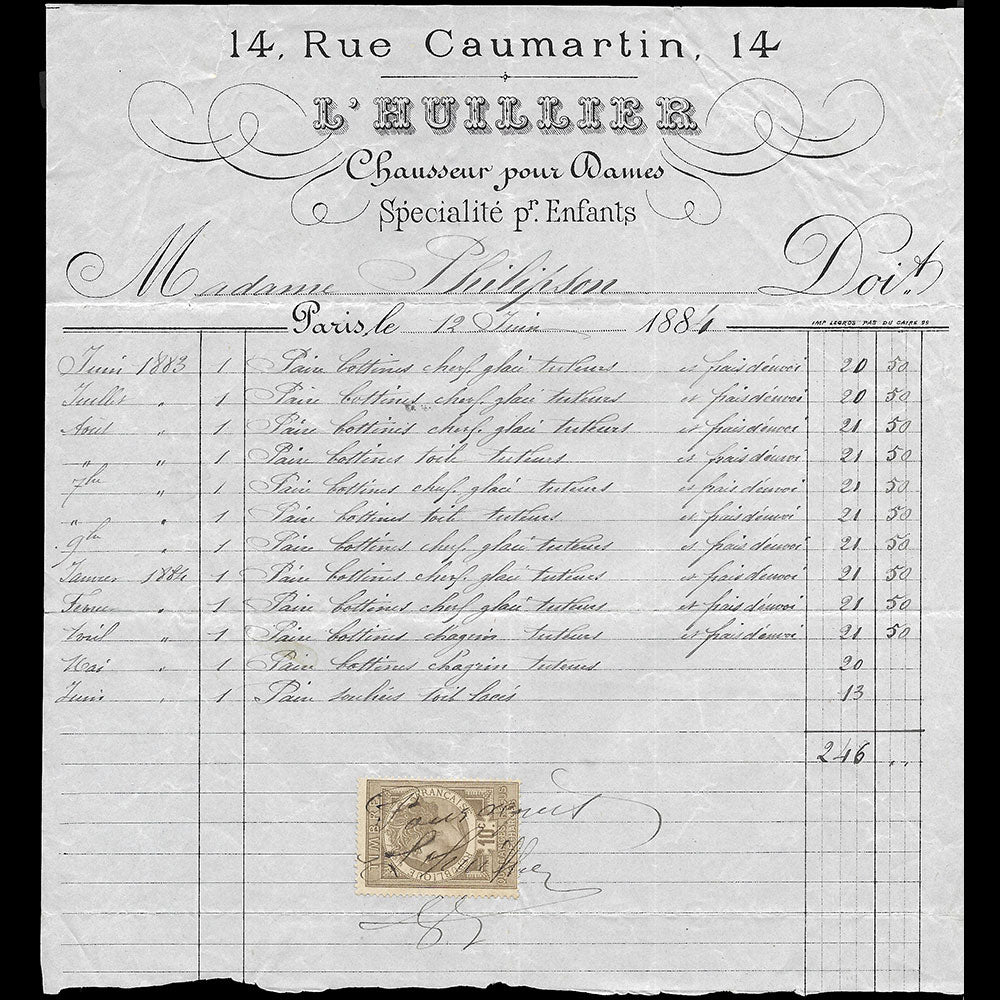 14, Rue Caumartin, 14
L'HUILLIER
Chausseur pour Dames
Spécialité pr. Enfants
Madame Philipson Doit
Paris, le 12 Juin 1884
IMP LEGROS PAS DU CAIRE 99
Juin 1883 1 Paire bottines chev. glacé tuteurs et frais d'envoi 20 50
Juillet " 1 Paire bottines chev. glacé tuteurs et frais d'envoi 20 50
Aout " 1 Paire bottines chev. glacé tuteurs et frais d'envoi 21 50
" " 1 Paire bottines toile tuteurs et frais d'envoi 21 50
7bre " 1 Paire bottines chev. glacé tuteurs et frais d'envoi 21 50
" " 1 Paire bottines toile tuteurs et frais d'envoi 21 50
9bre " 1 Paire bottines chev. glacé tuteurs et frais d'envoi 21 50
Janvier 1884 1 Paire bottines chev. glacé tuteurs et frais d'envoi 21 50
Fevrier " 1 Paire bottines chev. glacé tuteurs et frais d'envoi 21 50
Avril " 1 Paire bottines chagrin tuteurs et frais d'envoi 21 50
Mai " 1 Paire bottines chagrin tuteurs 20
Juin " 1 Paire souliers toile lacés 13
246 "
Pour acquit
L'huillier
TIMBRE
RÉPUBLIQUE FRANÇAISE
10c